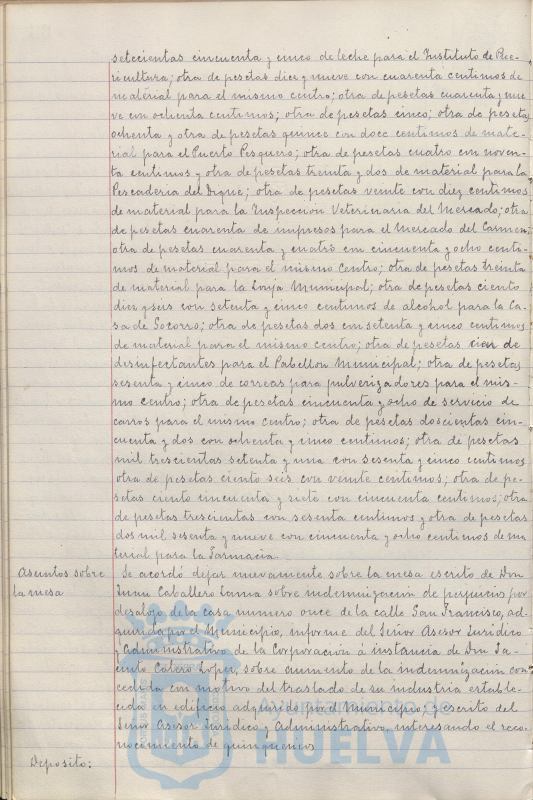 setecientas cincuenta y cinco de leche para el Instituto de Pue-
ricultura; otra de pesetas diez y nueve con cuarenta centimos de
material para el mismo centro; otra de pesetas cuarenta y nue
ve con ochenta centimos; otra de pesetas cinco; otra de pesetas
ochenta y otra de pesetas quince con doce centimos de mate-
rial para el Puerto Pesquero; otra de pesetas cuatro con noven-
ta centimos y otra de pesetas treinta y dos de material para la
Pescaderia del Dique; otra de pesetas veinte con diez centimos
de material para la Inspeccion Veterinaria del Mercado; otra
de pesetas cuarenta de impresos para el Mercado del Carmen;
otra de pesetas cuarenta y cuatro con cincuenta y ocho centi-
mos de material para el mismo Centro; otra de pesetas treinta
de material para la Lonja Municipal; otra de pesetas ciento
diez y seis con setenta y cinco centimos de alcohol para la Ca-
sa de Socorro; otra de pesetas dos con setenta y cinco centimos
de material para el mismo centro; otra de pesetas cien de
desinfectantes para el Pabellon Municipal; otra de pesetas
sesenta y cinco de correas para pulverizadores para el mis-
mo centro; otra de pesetas cincuenta y ocho de servicio de
carros para el mismo centro; otra de pesetas doscientas cin-
cuenta y dos con ochenta y cinco centimos; otra de pesetas
mil trescientas setenta y una con sesenta y cinco centimos
otra de pesetas ciento seis con veinte centimos; otra de pe-
setas ciento cincuenta y siete con cincuenta centimos; otra
de pesetas trescientas con sesenta centimos y otra de pesetas
dos mil sesenta y nueve con cincuenta y ocho centimos de ma
terial para la Farmacia.
Asuntos sobre
la mesa
Se acordó dejar nuevamente sobre la mesa escrito de Don
Juan Caballero Lama sobre indemnizacion de perjuicios por
desalojo de la casa numero once de la calle San Francisco, ad-
quirida por el Municipio, informe del Señor Asesor Juridico
y Administrativo de la Corporacion á instancia de Don Ja-
cinto Calero Lopez, sobre aumento de la indemnizacion con
cedida con motivo del traslado de su industria estable-
cida en edificio adquirido por el Municipio, y escrito del
Señor Asesor Juridico y Administrativo, interesando el reco-
nocimiento de quinquenios
Deposito:
Ayuntamiento de
HUELVA